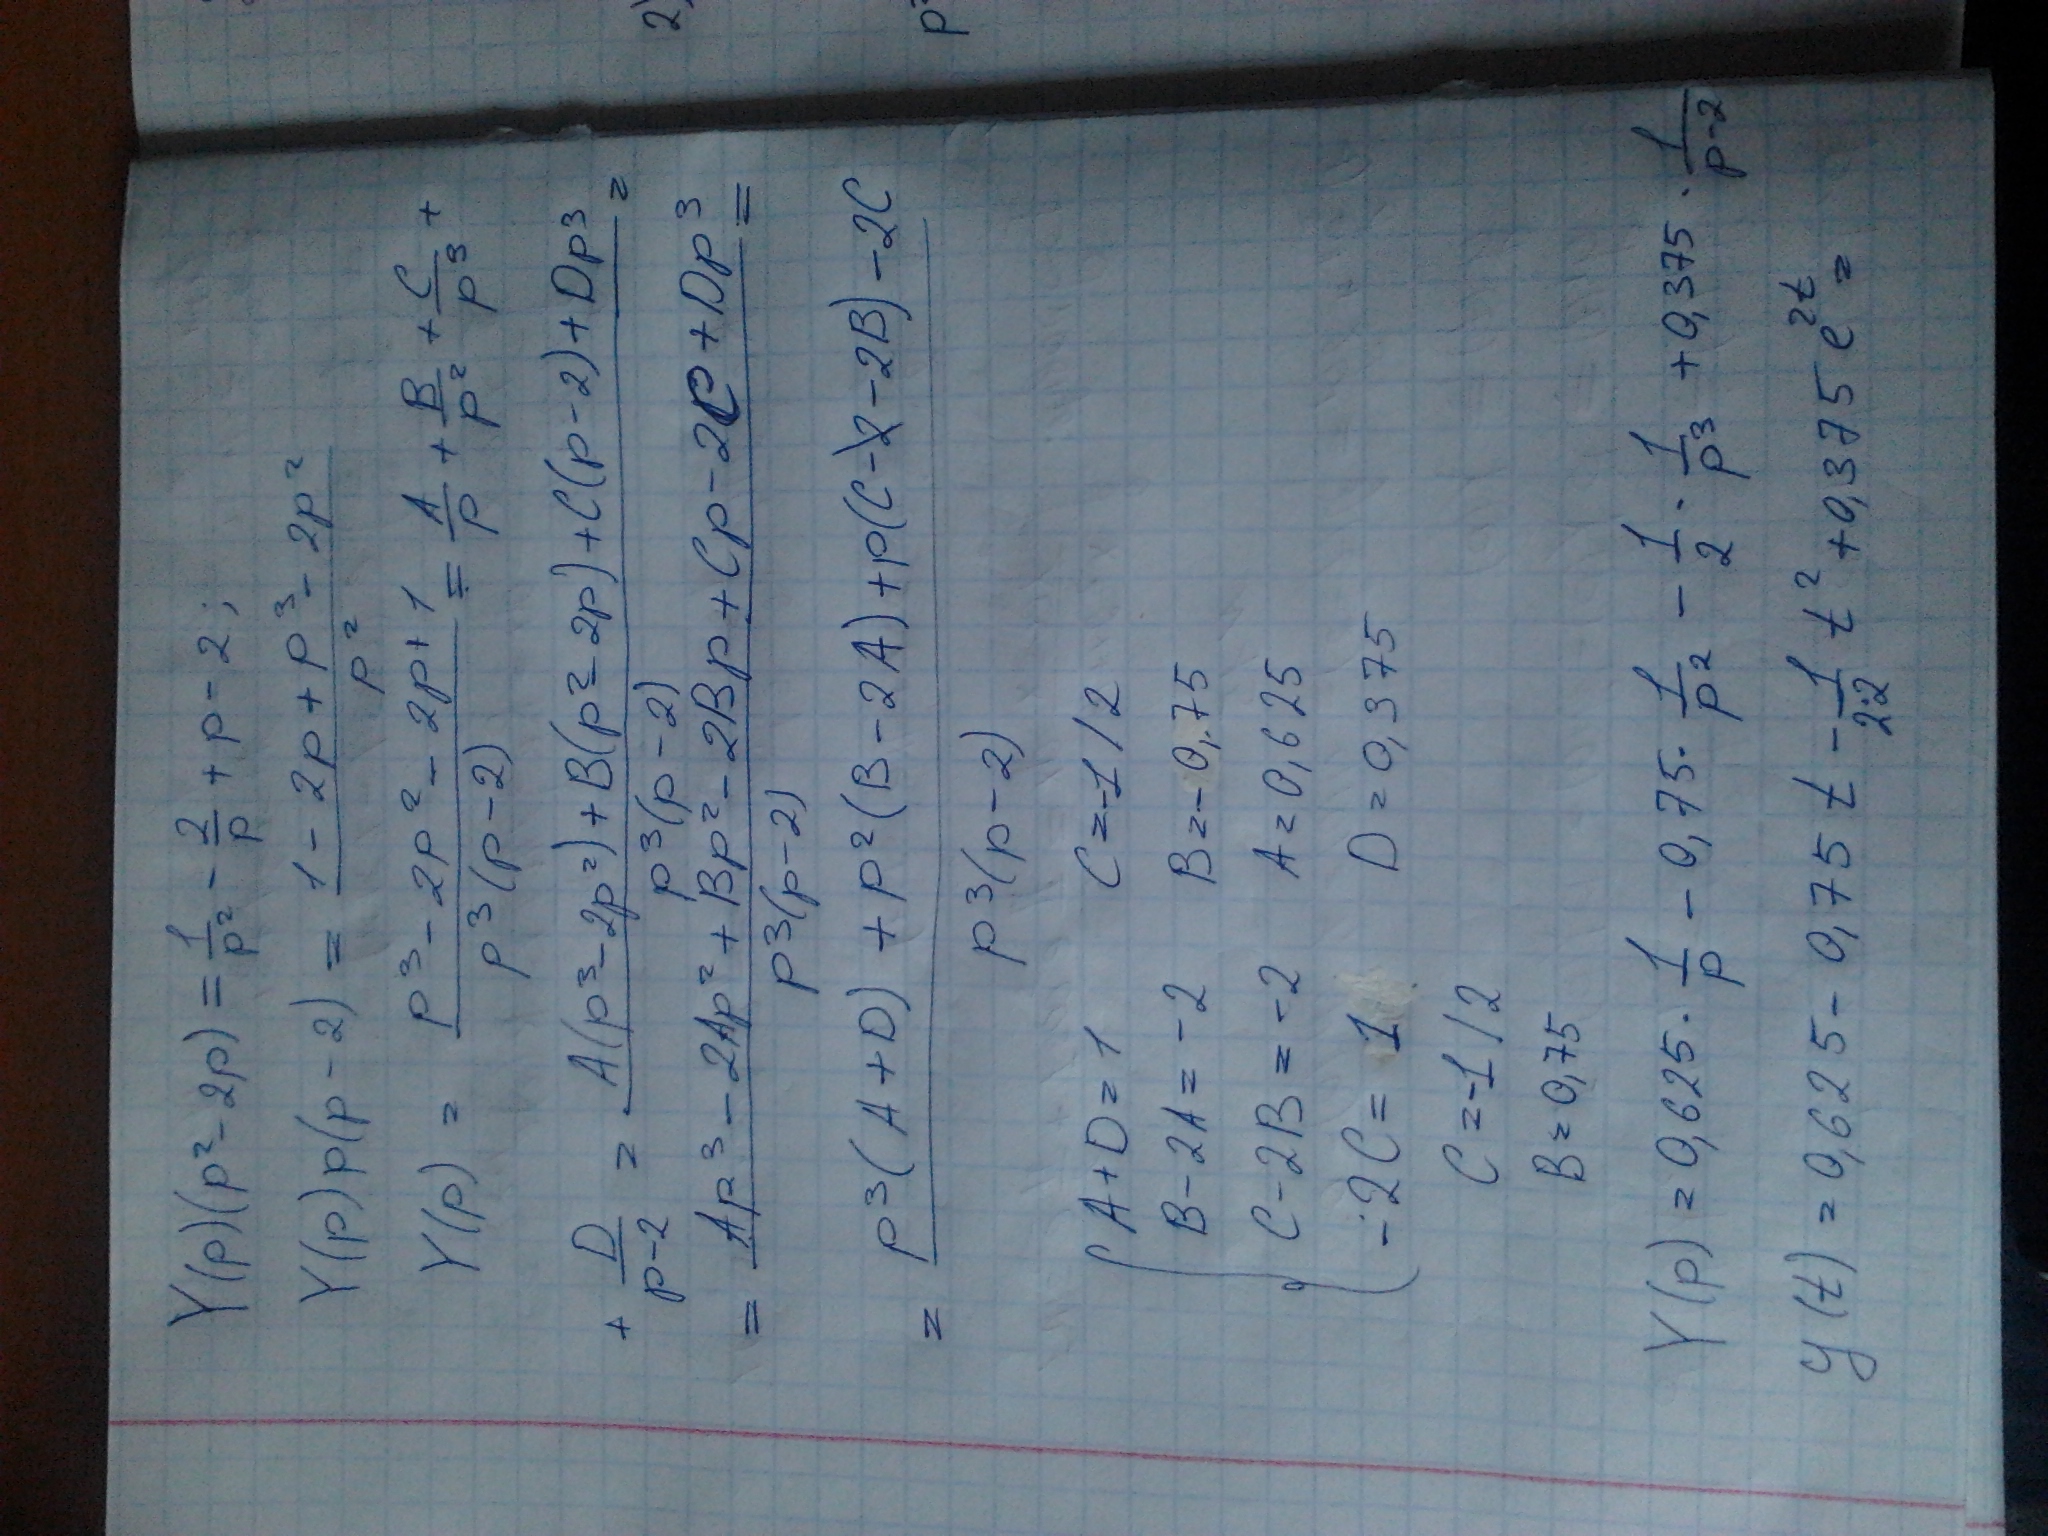 Y(p)(p² - 2p) = 1/p² - 2/p + p - 2 ;
Y(p) p(p - 2) = (1 - 2p + p³ - 2p²)/p²
Y(p) = (p³ - 2p² - 2p + 1)/(p³(p-2)) = A/p + B/p² + C/p³ +
+ D/(p-2) = (A(p³ - 2p²) + B(p² - 2p) + C(p-2) + Dp³)/(p³(p-2)) =
= (Ap³ - 2Ap² + Bp² - 2Bp + Cp - 2C + Dp³)/(p³(p-2)) =
= (p³(A+D) + p²(B - 2A) + p(C - 2B) - 2C)/(p³(p-2))
A + D = 1 C = -1/2
B - 2A = -2 B = -0,75
C - 2B = -2 A = 0,625
-2C = 1 D = 0,375
C = -1/2
B = 0,75
Y(p) = 0,625 · 1/p - 0,75 · 1/p² - 1/2 · 1/p³ + 0,375 · 1/(p-2)
y(t) = 0,625 - 0,75 t - 1/(2·2) t² + 0,375 e²ᵗ =
2)